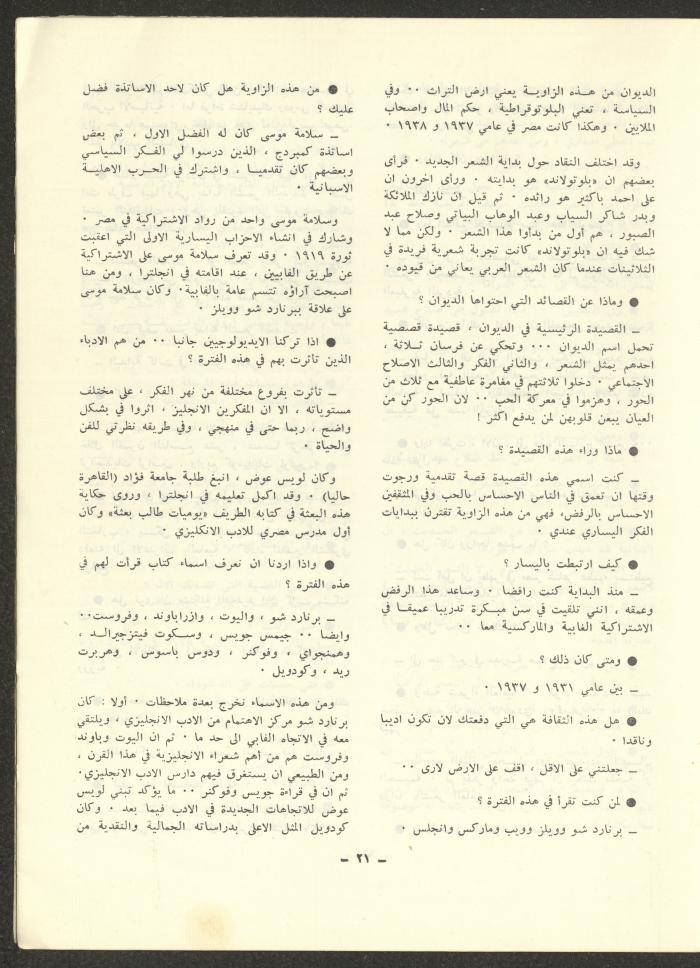 الديوان من هذه الزاوية يعني ارض التراث ٠٠ وفي
السياسة ، تعني البلوتوقراطية ، حكم المال واصحاب
الملايين ٠ وهكذا كانت مصر في عامي ١٩٣٧ و ١٩٣٨ ٠
وقد اختلف النقاد حول بداية الشعر الجديد ٠ فرأى
بعضهم ان «بلوتولاند» هو بدايته ٠ ورأى اخرون ان
على احمد باكثير هو رائده ٠ ثم قيل ان نازك الملائكة
وبدر شاكر السياب وعبد الوهاب البياتي وصلاح عبد
الصبور ، هم أول من بدأوا هذا الشعر ٠ ولكن مما لا
شك فيه ان «بلوتولاند» كانت تجربة شعرية فريدة في
الثلاثينات عندما كان الشعر العربي يعاني من قيوده ٠
● وماذا عن القصائد التي احتواها الديوان ؟
ــ القصيدة الرئيسية في الديوان ، قصيدة قصصية
تحمل اسم الديوان ٠٠٠ وتحكي عن فرسان ثلاثة ،
احدهم يمثل الشعر ، والثاني الفكر والثالث الاصلاح
الاجتماعي ٠ دخلوا ثلاثتهم في مغامرة عاطفية مع ثلاث من
الحور ، وهزموا في معركة الحب ٠٠ لان الحور كن من
العيان يبعن قلوبهن لمن يدفع اكثر !
● ماذا وراء هذه القصيدة ؟
ــ كنت اسمي هذه القصيدة قصة تقدمية ورجوت
وقتها ان تعمق في الناس الاحساس بالحب وفي المثقفين
الاحساس بالرفض، فهي من هذه الزاوية تقترن ببدايات
الفكر اليساري عندي ٠
● كيف ارتبطت باليسار ؟
ــ منذ البداية كنت رافضا ٠ وساعد هذا الرفض
وعمقه ، انني تلقيت في سن مبكرة تدريبا عميقا في
الاشتراكية الفابية والماركسية معا ٠٠
● ومتى كان ذلك ؟
ــ بين عامي ١٩٣١ و ١٩٣٧ ٠
● هل هذه الثقافة هي التي دفعتك لان تكون اديبا
وناقدا ٠
ــ جعلتني على الاقل ، اقف على الارض لارى ٠٠
● لمن كنت تقرأ في هذه الفترة ؟
ــ برنارد شو وويلز وويب وماركس وانجلس ٠
● من هذه الزاوية هل كان لاحد الاساتذة فضل
عليك ؟
ــ سلامة موسى كان له الفضل الاول ، ثم بعض
اساتذة كمبردج ، الذين درسوا لي الفكر السياسي
وبعضهم كان تقدميا ، واشترك في الحرب الاهلية
الاسبانية ٠
وسلامة موسى واحد من رواد الاشتراكية في مصر ٠
وشارك في انشاء الاحزاب اليسارية الاولى التي اعقبت
ثورة ١٩١٩ ٠ وقد تعرف سلامة موسى على الاشتراكية
عن طريق الفابيين ، عند اقامته في انجلترا ، ومن هنا
اصبحت آراؤه تتسم عامة بالفابية٠ وكان سلامة موسى
على علاقة ببرنارد شو وويلز ٠
● اذا تركنا الايديولوجيين جانبا ٠٠ من هم الادباء
الذين تأثرت بهم في هذه الفترة ؟
ــ تأثرت بفروع مختلفة من نهر الفكر ، على مختلف
مستوياته ، الا ان المفكرين الانجليز ، اثروا في بشكل
واضح ، ربما حتى في منهجي ، وفي طريقه نظرتي للفن
والحياة ٠
وكان لويس عوض ، انبغ طلبة جامعة فؤاد (القاهرة
حاليا) ٠ وقد اكمل تعليمه في انجلترا ، وروى حكاية
هذه البعثة في كتابه الطريف «يوميات طالب بعثة» وكان
أول مدرس مصري للادب الانكليزي ٠
● واذا اردنا ان نعرف اسماء كتاب قرأت لهم في
هذه الفترة ؟
ــ برنارد شو ، واليوت ، وازراباوند ، وفروست٠٠
وايضا ٠٠ جيمس جويس ، وسكوت فيتزجيرالد ،
وهمنجواي ، وفوكنر ، ودوس باسوس ، وهربرت
ريد ، وكودويل ٠
ومن هذه الاسماء نخرج بعدة ملاحظات ٠ أولا : كان
برنارد شو مركز الاهتمام من الادب الانجليزي ، ويلتقي
معه في الاتجاه الفابي الى حد ما ٠ ثم ان اليوت وباوند
وفروست هم من أهم شعراء الانجليزية في هذا القرن ،
ومن الطبيعي ان يستغرق فيهم دارس الادب الانجليزي٠
ثم ان في قراءة جويس وفوكنر ٠٠ ما يؤكد تبني لويس
عوض للاتجاهات الجديدة في الادب فيما بعد ٠ وكان
كودويل المثل الاعلى بدراساته الجمالية والنقدية من
ــ ٢١ ــ